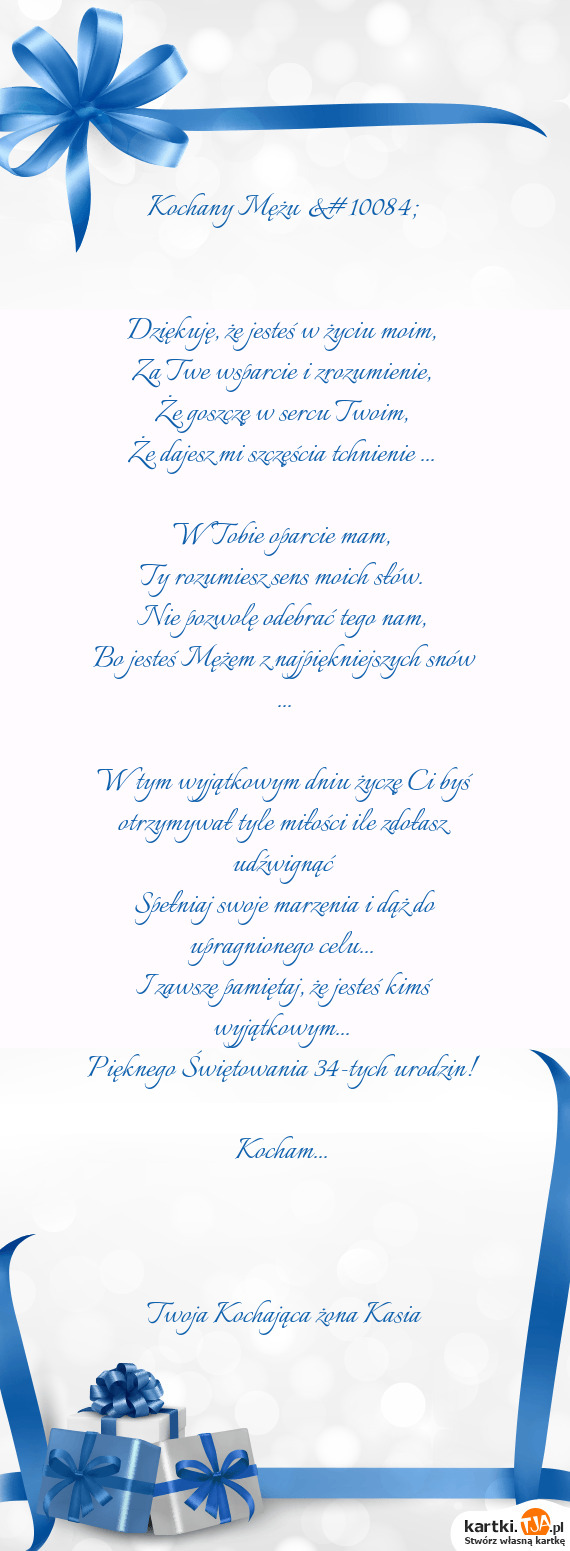 Kochany Mężu &#10084;
Dziękuję, że jesteś w życiu moim,
Za Twe wsparcie i zrozumienie,
Że goszczę w sercu Twoim,
Że dajesz mi szczęścia tchnienie ...
W Tobie oparcie mam,
Ty rozumiesz sens moich słów.
Nie pozwolę odebrać tego nam,
Bo jesteś Mężem z najpiękniejszych snów
...
W tym wyjątkowym dniu życzę Ci byś
otrzymywał tyle miłości ile zdołasz
udźwignąć
Spełniaj swoje marzenia i dąż do
upragnionego celu...
I zawsze pamiętaj, że jesteś kimś
wyjątkowym...
Pięknego Świętowania 34-tych urodzin!
Kocham...
Twoja Kochająca żona Kasia
kartki.TJA.pl
Stwórz własną kartkę